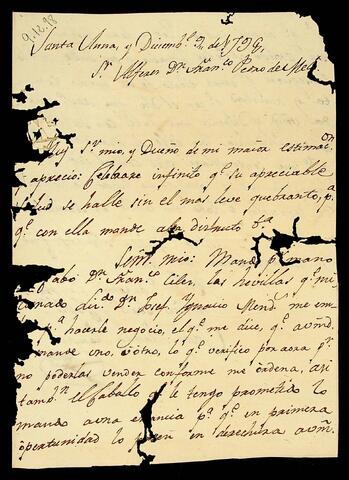 9.12.18
Santa Anna, y Diciemb.e 2 de 1796,
S.r Alferes D.n Fran.co Perao de
Muy S.r mio, y Dueño de mi maior estimac.on
y aprecio: Celebrare infinito q.e su apreciable
salud se halle sin el mas leve quebranto, p.a
q.e con ella mande a la
S.or mio: Mando p.r mano
D.n Fran.co las hevillas q.e mi
D.n Josef Ignacio Mend. me
p.a hacerle negocio, el q.e me dice, q.e a
mande uno, v otro, lo q.e verifico por aora p.r
no poderlas vender conforme me ordena, asi
tamb.n el caballo q.e le tengo prometido lo
mando a una estancia p.a q.e en primera
oportunidad lo en derechura a